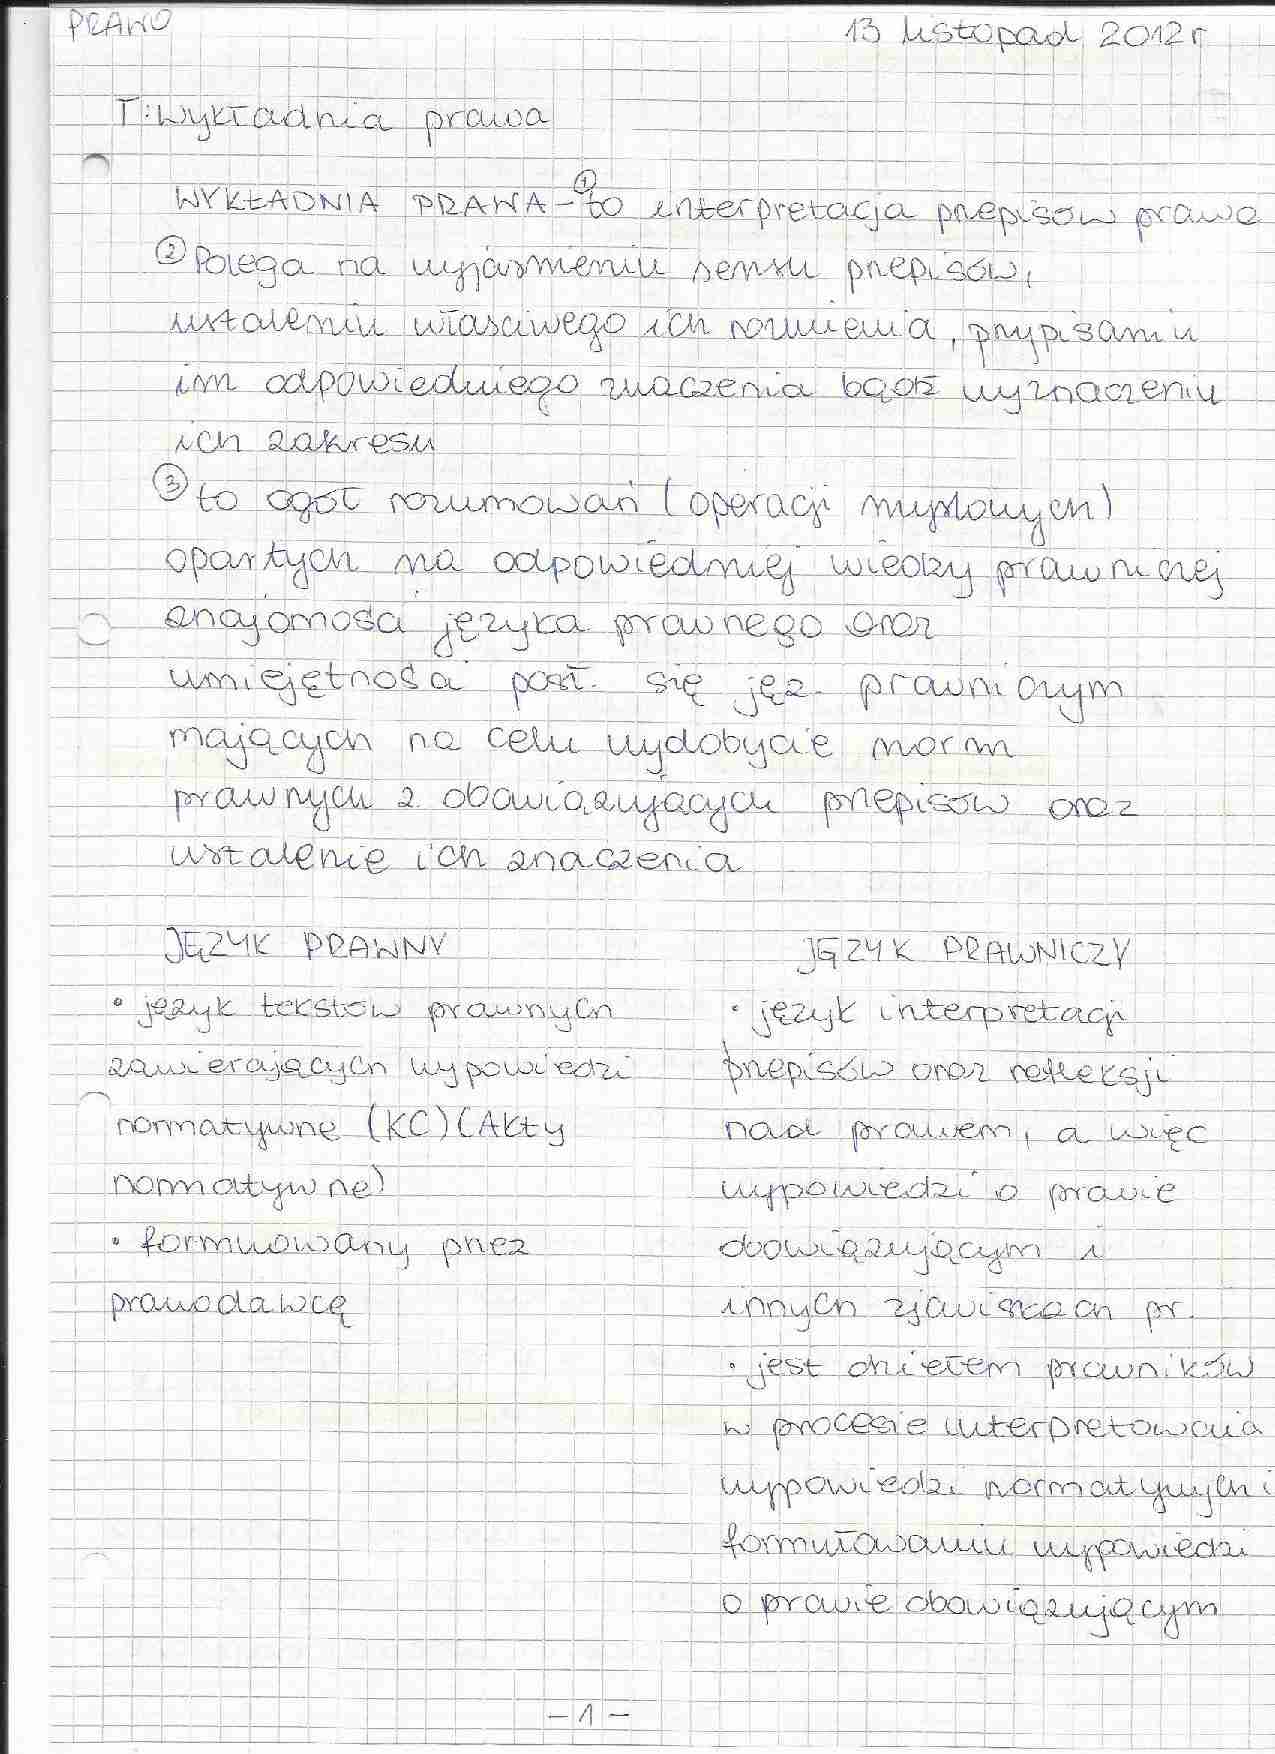 PRAWO
13 listopad 2012r
T: Wykładnia prawa
WYKŁADNIA PRAWA - ① to interpretacja przepisów prawa
② Polega na wyjaśnieniu sensu przepisów,
ustaleniu właściwego ich rozumienia, przypisaniu
im odpowiedniego znaczenia bądź wyznaczeniu
ich zakresu
③ to ogół rozumowań (operacji myślowych)
opartych na odpowiedniej wiedzy prawniczej
znajomości języka prawnego oraz
umiejętności posł. się jęz. prawniczym
mających na celu wydobycie norm
prawnych z obowiązujących przepisów oraz
ustalenie ich znaczenia
JĘZYK PRAWNY
• język tekstów prawnych
zawierających wypowiedzi
normatywne (KC) (Akty
normatywne)
• formułowany przez
prawodawcę
JĘZYK PRAWNICZY
• język interpretacji
przepisów oraz refleksji
nad prawem, a więc
wypowiedzi o prawie
obowiązującym i
innych zjawiskach pr.
• jest dziełem prawników
w procesie interpretowania
wypowiedzi normatywnych i
formułowaniu wypowiedzi
o prawie obowiązującym
- 1 -